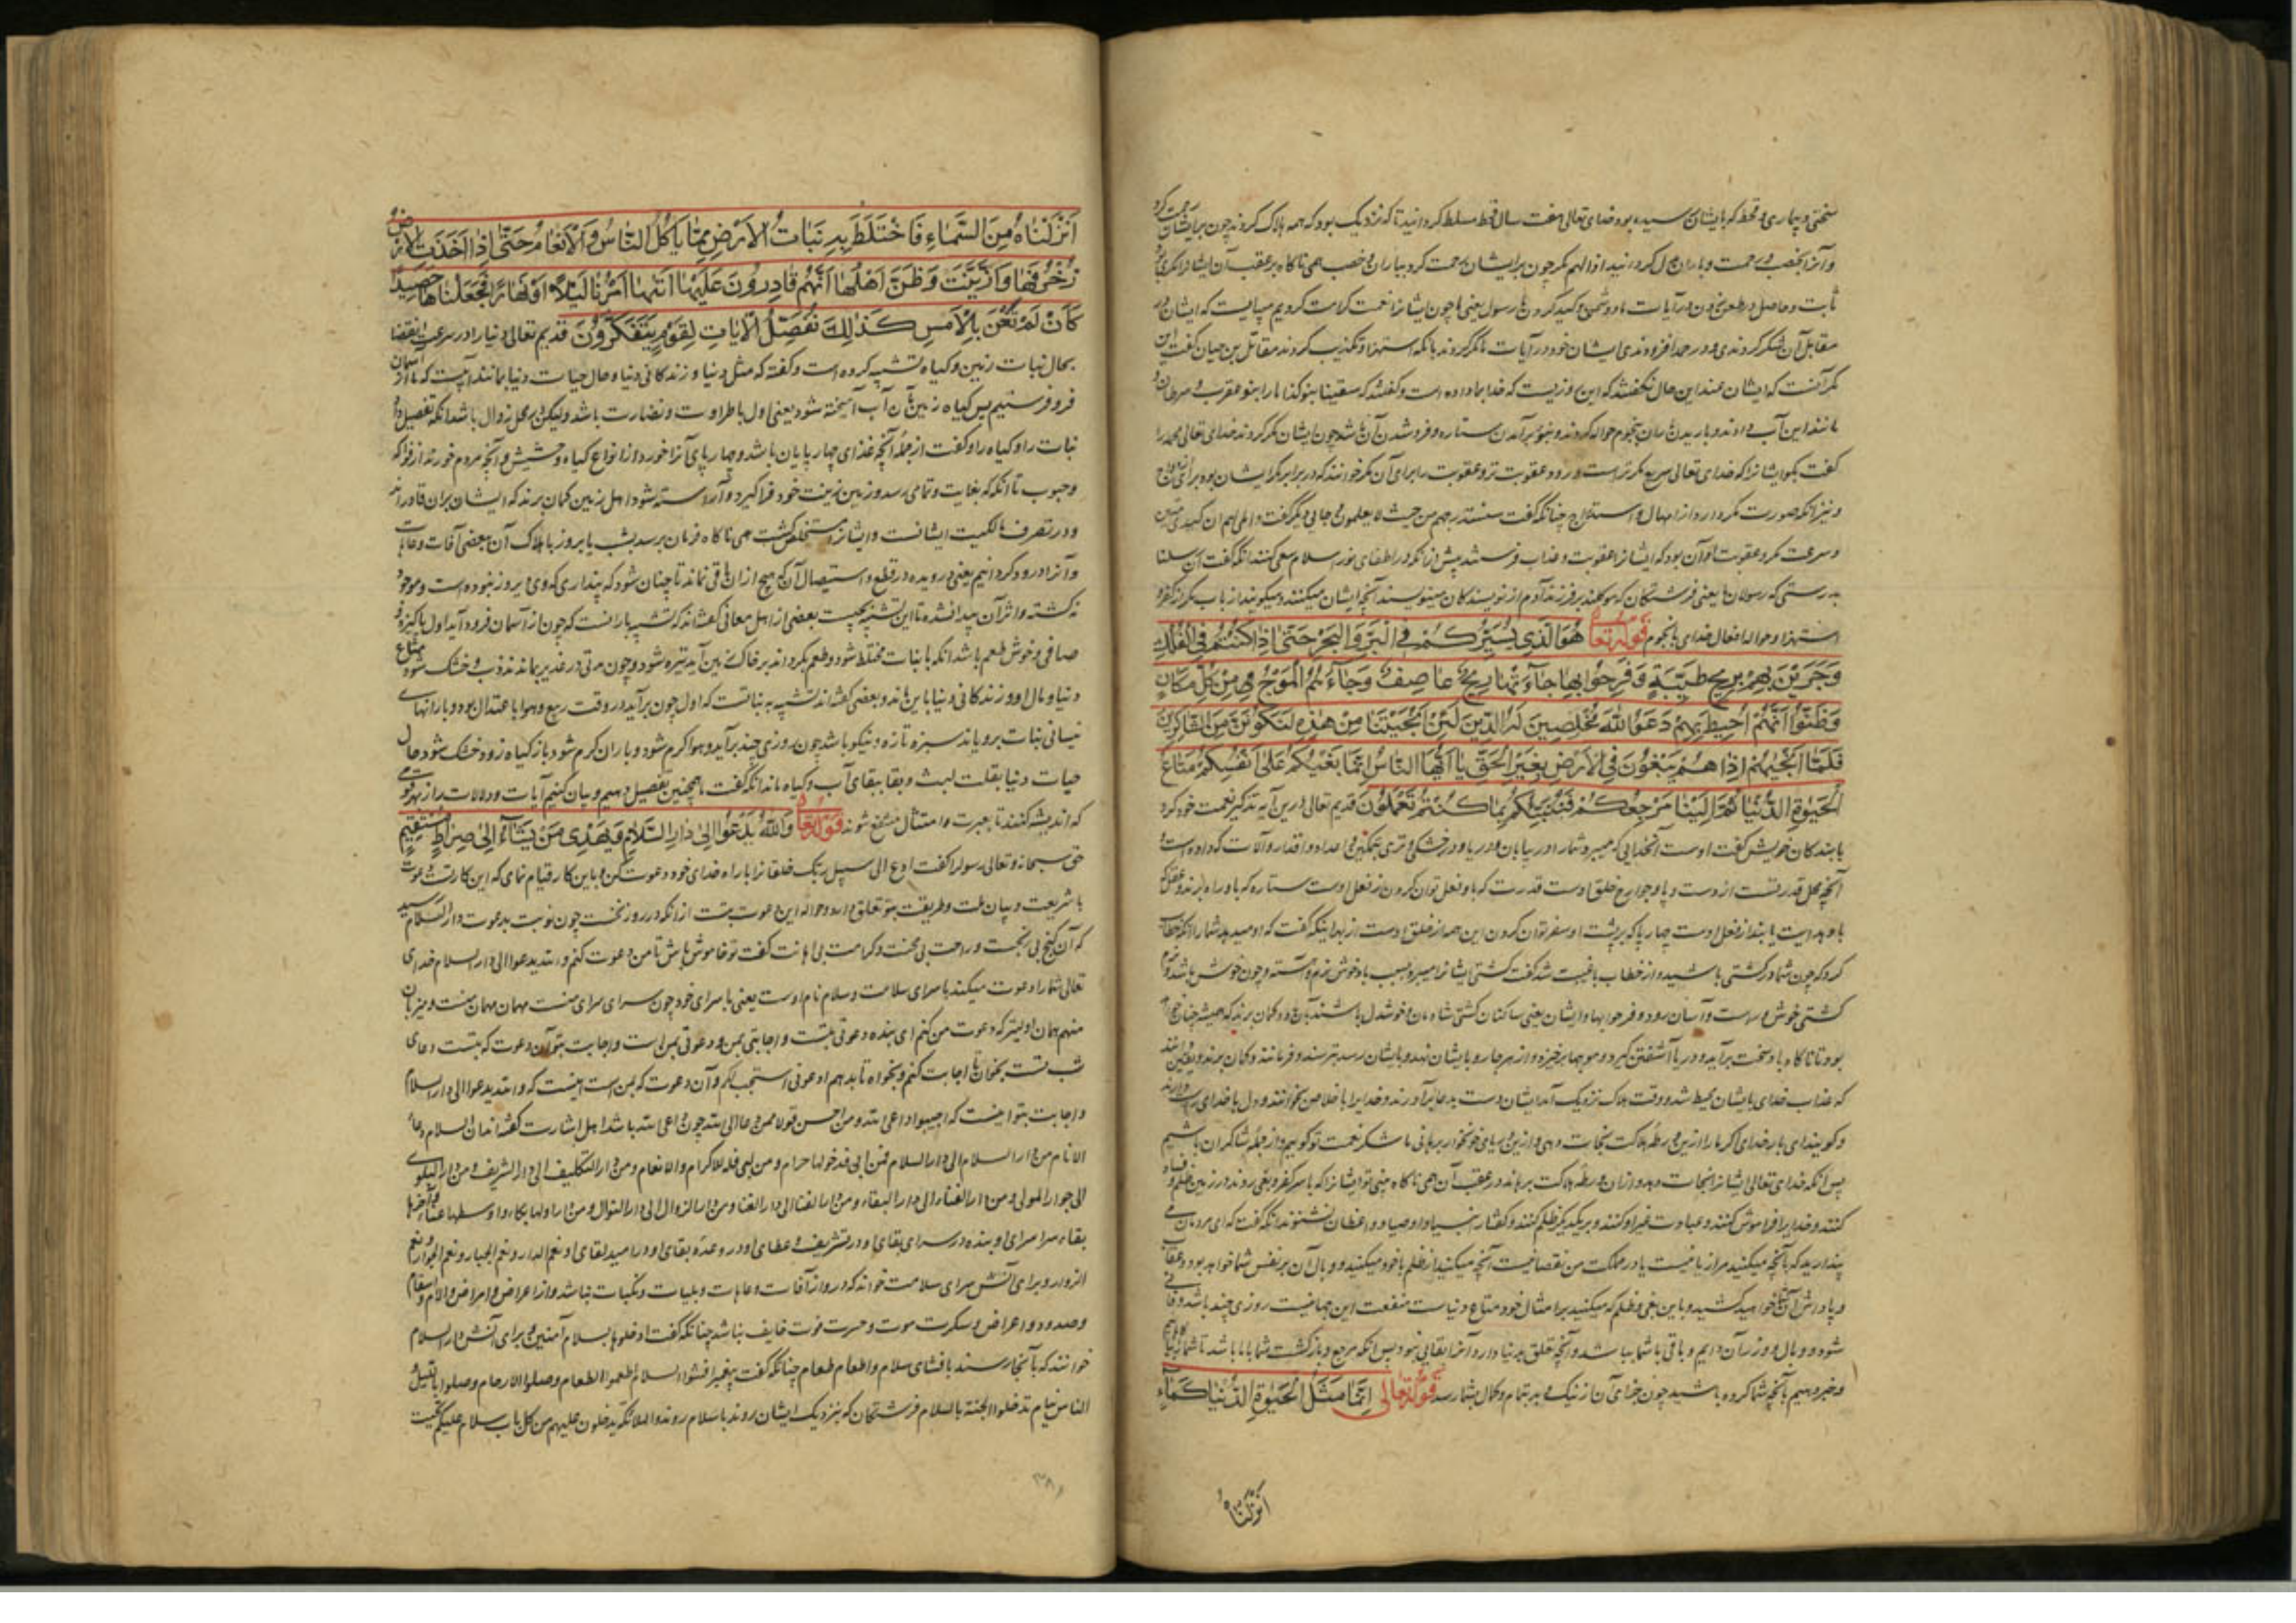 سختی و بیماری و قحط که بایشان رسیده بود خدای تعالی هفت سال قحط مسلط گردانید تا که نزدیک بود که همه هلاک گردند چون برایشان رحمت کرد
و آنرا بخصب و رحمت و باران بدل گردانید اذا لهم مکر چون برایشان رحمت کرد بباران و خصب همی ناگاه بر عقب آن ایشانرا مکری بود
ثابت و حاصل در طعن زدن در آیات ما و دشمنی و کید کردن با رسول یعنی ما چون ایشانرا نعمت کرامت کردیم میبایست که ایشان در
مقابل آن شکر کردندی و در حمد افزودندی ایشان خود در آیات ما مکر کردند بانکه استهزا و تکذیب کردند مقاتل بن حیان گفت این
مکر آنست که ایشان عند این حال نگفتند که این روزیست که خدا بما داده است و گفتند که سقینا بنوء کذا ما را بنوء عقرب و سرطان و
مانند این آب دادند و باریدن باران بنجوم حواله کردند و بنوء برآمدن ستاره و فرو شدن آن باشد چون ایشان مکر کردند خدای تعالی محمد را
گفت بگو ایشانرا که خدای تعالی سریع مکرترست و زود عقوبت تر و عقوبت را برای آن مکر خوانند که در برابر مکر ایشان بود برای ازدواج
و نیز آنکه صورت مکر دارد از امهال و استدراج چنانکه گفت سنستدرجهم من حیث لا یعلمون و جایی دیگر گفت و املی لهم ان کیدی متین
و سرعت مکر و عقوبت او آن بود که ایشانرا عقوبت و عذاب فرستد پیش از آنکه در اطفای نور اسلام سعی کنند آنگه گفت ان رسلنا
بدرستی که رسولان ما یعنی فرشتگان که موکلند بر فرزند آدم از نویسندگان مینویسند آنچه ایشان میکنند و میگویند از باب مکر از کفر و
استهزا و حواله افعال خدای بانجوم قوله تعالی هُوَ الَّذِي يُسَيِّرُكُمْ فِي الْبَرِّ وَالْبَحْرِ حَتّٰى اِذَا كُنْتُمْ فِي الْفُلْكِ
وَجَرَيْنَ بِهِمْ بِرِيحٍ طَيِّبَةٍ وَفَرِحُوا بِهَا جَاءَتْهَا رِيحٌ عَاصِفٌ وَجَاءَهُمُ الْمَوْجُ مِنْ كُلِّ مَكَانٍ
وَظَنُّوا اَنَّهُمْ اُحِيطَ بِهِمْ دَعَوُا اللّٰهَ مُخْلِصِينَ لَهُ الدِّينَ لَئِنْ اَنْجَيْتَنَا مِنْ هٰذِهِ لَنَكُونَنَّ مِنَ الشَّاكِرِينَ
فَلَمَّا اَنْجٰيهُمْ اِذَا هُمْ يَبْغُونَ فِي الْاَرْضِ بِغَيْرِ الْحَقِّ يَا اَيُّهَا النَّاسُ اِنَّمَا بَغْيُكُمْ عَلٰى اَنْفُسِكُمْ مَتَاعَ
الْحَيٰوةِ الدُّنْيَا ثُمَّ اِلَيْنَا مَرْجِعُكُمْ فَنُنَبِّئُكُمْ بِمَا كُنْتُمْ تَعْمَلُونَ قدیم تعالی درین آیه تذکیر نعمت خود کرد
با بندگان خویش گفت اوست آنخدایی که میبرد شما را در بیابان و در دریا و در خشکی و تری بتمکین و امداد و اقدار و آلات که داده است و
آنچه محل قدرتست از دست و پا و جوارح خلق اوست قدرت که باو فعل توان کردن از فعل اوست ستاره که باو راه برند و عقل که
باو هدایت یابند از فعل اوست چهارپا که بر پشت او سفر توان کردن این همه از خلق اوست از بهر اینکه گفت که او میبرد شما را آنگه خطاب
کرد که چون شما در کشتی باشید و از خطاب با غیبت شد گفت کشتی ایشانرا میبرد بسبب باد خوش نرم و آهسته و چون خوش باشد و نرم
کشتی خوش و راست و آسان رود و فرحوا بها و ایشان یعنی ساکنان کشتی شادمان و خوشدل باشند بآن و گمان برند که همیشه چنان خواهد
بود تا ناگاه باد سخت برآید و دریا آشفتن گیرد و موجها برخیزد و از هر جا رو بایشان نهد و بایشان رسد بترسند و فرمانند و گمان برند و یقین دانند
که عذاب خدای بایشان محیط شد و وقت هلاک نزدیک آمد ایشان دست بدعا برآورند و خدایرا باخلاص بخوانند و دل با خدای راست دارند
و گویند ای بار خدای اگر ما را ازین ورطه هلاکت نجات دهی و ازین دریای خونخوار برهانی ما شکر نعمت تو گوییم و از جمله شاکران باشیم
پس آنکه خدای تعالی ایشانرا نجات دهد و از آن ورطه هلاکت برهاند در عقب آن همی ناگاه بینی تو ایشانرا که با سر کفر و بغی روند و در زمین ظلم و فساد
کنند و خدایرا فراموش کنند و عبادت غیر او کنند و بر یکدیگر ظلم کنند و گفتار انبیا و اوصیا و واعظان نشنوند آنگه گفت که ای مردمان می
پندارید که بآنچه میکنید مرا زیانیست یا در مملکت من نقصانیست آنچه میکنید از ظلم با خود میکنید و وبال آن بر نفس شما خواهد بود و عقاب
و پاداش آن شما خواهید کشید و باین بغی و ظلم که میکنید بر امثال خود متاع دنیاست منفعت این جهانیست روزی چند باشد و فانی
شود و وبال و وزر آن دایم و باقی باشما بباشد و آنچه تعلق بدنیا دارد آنرا بقایی نبود پس آنکه مرجع و بازگشت شما باما باشد تا شما را
و خبر دهیم بآنچه شما کرده باشید چون جزای آن از نیک و بد بتمام و کمال بشما رسد قوله تعالی اِنَّمَا مَثَلُ الْحَيٰوةِ الدُّنْيَا كَمَاءٍ
اَنْزَلْنَاهُ
اَنْزَلْنَاهُ مِنَ السَّمَاءِ فَاخْتَلَطَ بِهِ نَبَاتُ الْاَرْضِ مِمَّا يَاْكُلُ النَّاسُ وَالْاَنْعَامُ حَتّٰى اِذَا اَخَذَتِ الْاَرْضُ
زُخْرُفَهَا وَازَّيَّنَتْ وَظَنَّ اَهْلُهَا اَنَّهُمْ قَادِرُونَ عَلَيْهَا اَتٰيهَا اَمْرُنَا لَيْلًا اَوْ نَهَارًا فَجَعَلْنَاهَا حَصِيدًا
كَاَنْ لَمْ تَغْنَ بِالْاَمْسِ كَذٰلِكَ نُفَصِّلُ الْاٰيَاتِ لِقَوْمٍ يَتَفَكَّرُونَ قدیم تعالی دنیا را در سرعت انقضا
بحال نبات زمین و گیاه تشبیه کرده است و گفته که مثل دنیا و زندگانی دنیا و حال حیات دنیا مانند آبیست که ما از آسمان
فرو فرستیم پس گیاه زمین بآن آب آمیخته شود یعنی اول باطراوت و نضارت باشد ولیکن بر محل زوال باشد آنکه تفصیل داد
نبات را و گیاه را و گفت از جمله آنچه غذای چهارپایان باشد و چهارپای آنرا خورد از انواع گیاه و حشیش و آنچه مردم خورند از فواکه
و حبوب تا آنکه که بغایت و تمامی رسد و زمین زینت خود فرا گیرد و آراسته شود اهل زمین گمان برند که ایشان بران قادرند
و در تصرف مالکیت ایشانست و ایشانرا مستخلص گشت همی ناگاه فرمان برسد بشب یا بروز باهلاک آن ببعضی آفات و عاهات
و آنرا درود گردانیم یعنی درویده در قطع و استیصال آن که هیچ از آن باقی نماند تا چنان شود که پنداری که دی و پریروز نبوده است و موجود
نگشته و اثر آن پیدا نشده تا این تشبیه بچیست بعضی از اهل معانی گفته‌اند که تشبیه بارانست که چون از آسمان فرود آید اول پاکیزه و
صافی و خوش طعم باشد آنگه با نبات مختلط شود و طعم بگرداند بر خاک زمین آید تیره شود و چون مدتی در غدیر بماند نه عذب و خشک شود متاع
دنیا و مال او و زندگانی دنیا باین ماند و بعضی گفته‌اند تشبیه به نباتست که اول چون برآید در وقت ربیع و هوا باعتدال بود و بارانهای
نیسانی نبات برویاند سبزه تازه و نیکو باشد چون روزی چند برآید و هوا گرم شود و باران کم شود باز گیاه زود خشک شود حال
حیات دنیا بقلت لبث و بقا ببقای آب و گیاه ماند آنگه گفت ما همچنین تفصیل دهیم و بیان کنیم آیات و دلالات را از بهر قومی
که اندیشه کنند تا بعبرت و امتثال منتفع شوند قوله تعالی وَاللّٰهُ يَدْعُوا اِلٰى دَارِ السَّلَامِ وَيَهْدِي مَنْ يَشَاءُ اِلٰى صِرَاطٍ مُسْتَقِيمٍ
حق سبحانه و تعالی رسول را گفت ادع الی سبیل ربک خلقانرا با راه خدای خود دعوت کن و باین کار قیام نمای که این کار تست دعوت
با شریعت و بیان ملت و طریقت بتو تعلق دارد و حواله این دعوت بتست از آنکه در روز نخست چون نوبت بدعوت دار السلام رسید
که آن گنج بی رنجست و راحت بی محنت و کرامت بی اهانت گفت تو خاموش باش تا من دعوت کنم و الله یدعوا الی دار السلام خدای
تعالی شما را دعوت میکند با سرای سلامت و سلام نام اوست یعنی با سرای خود چون سرای سرای منست مهمان مهمان منست و میزبان
منم همان اولیتر که دعوت من کنم ای بنده دعوتی بتست و اجابتی بمن و دعوتی بمن است و اجابت بتو آن دعوت که بتست دعای
شب تست بخوان تا اجابت کنم و بخواه تا بدهم ادعونی استجب لکم و آن دعوت که بمن است اینست که و الله یدعوا الی دار السلام
و اجابت بتو اینست که اجیبوا داعی الله و من احسن قولا ممن دعا الی الله چون داعی الله باشد اهل اشارت گفته‌اند ان السلام دعا
الانام من دار السلام الی دار السلام فمن ابی فدخولها حرام و من لبی فله الاکرام والانعام و من دار التکلیف الی دار التشریف و من دار البلوی
الی جوار المولی و من دار الفناء الی دار البقاء و من دار العنا الی دار الغنا و من دار الزوال الی دار النوال و من دار اولها بکاء و اوسطها عناء و آخرها
بقاء سرا سرای او بنده در سرای بقای او در تشریف و عطای او در وعده بقای او در امید لقای او نعم الدار و نعم الجبار و نعم الجوار و نعم
الزوار و برای آنش سرای سلامت خواند که درو از آفات و عاهات و بلیات و نکبات نباشد و از اعراض و امراض و آلام و اسقام
و صدود و اعراض و سکرت موت و حسرت فوت خایف نباشد چنانکه گفت ادخلوها بسلام آمنین و برای آنش دار السلام
خوانند که بآنجا رسند بافشای سلام و اطعام طعام چنانکه گفت پیغمبر افشوا السلام و اطعموا الطعام و صلوا الارحام و صلوا باللیل و
الناس نیام تدخلوا الجنة بالسلام فرشتگان که بنزدیک ایشان روند باسلام روند والملائکة یدخلون علیهم من کل باب سلام علیکم تحیت